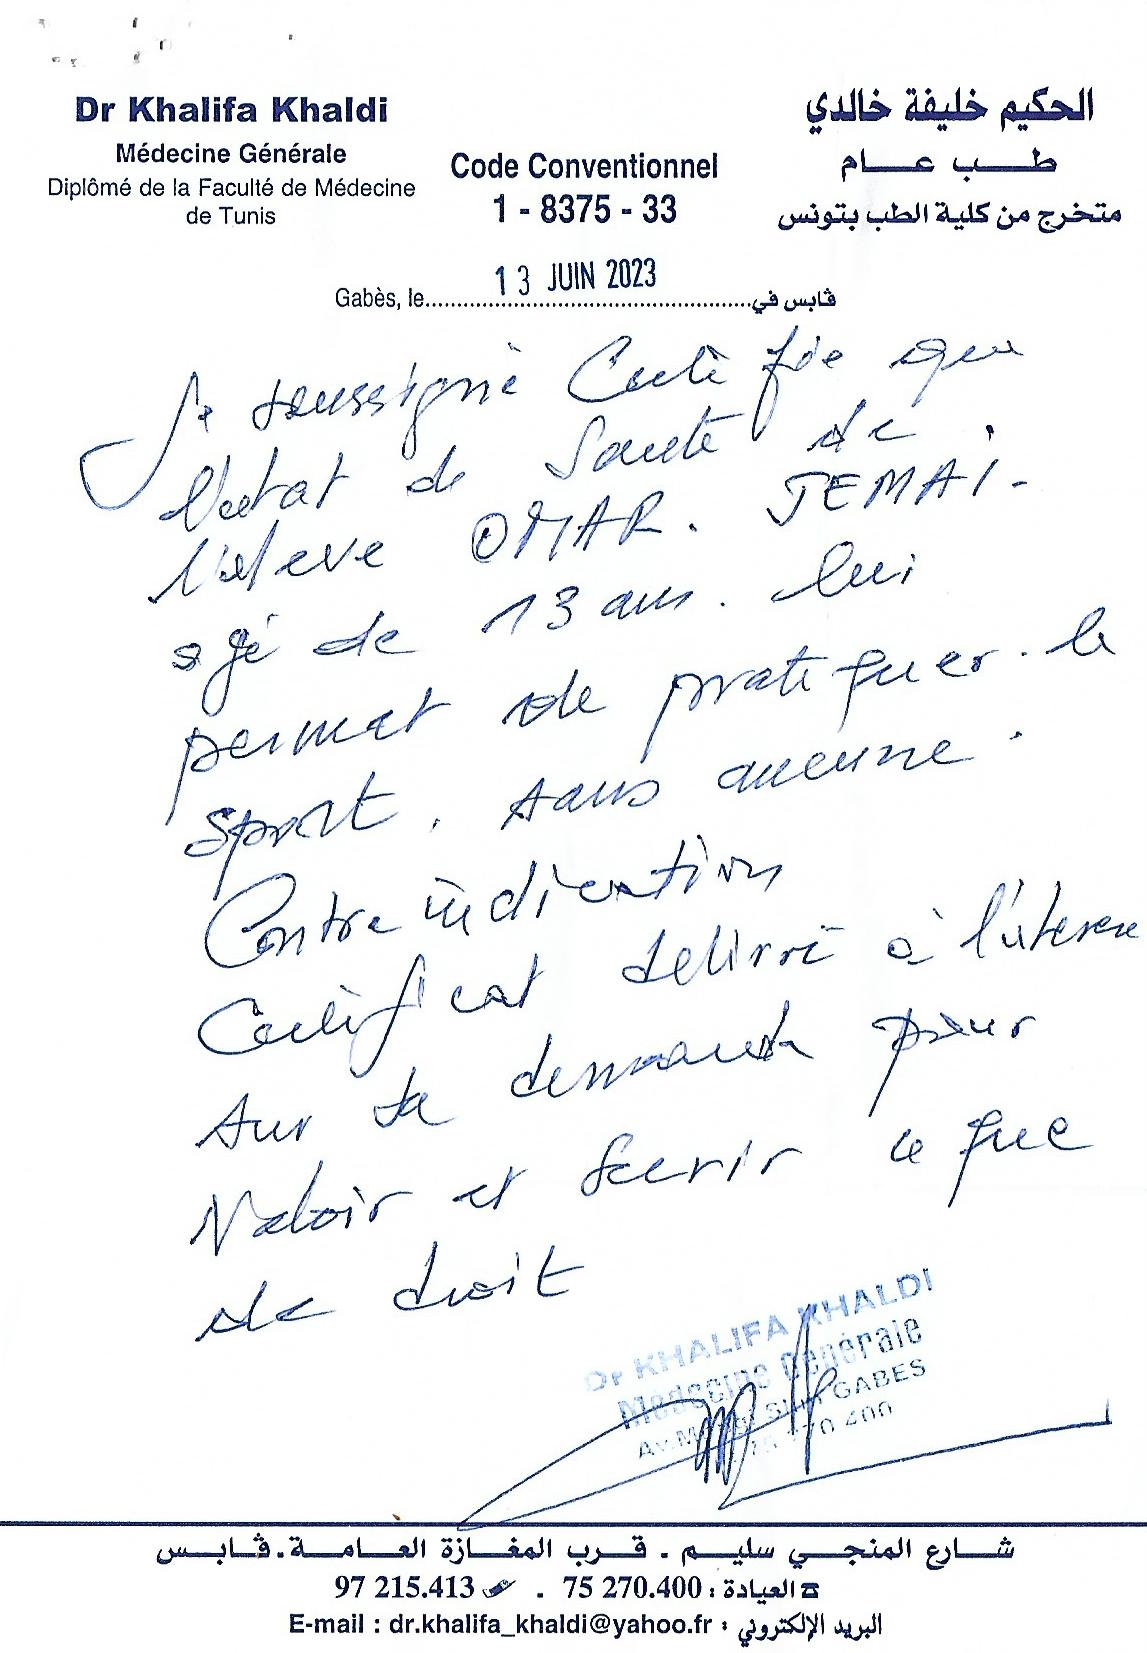 Dr Khalifa Khaldi
Médecine Générale
Diplômé de la Faculté de Médecine
de Tunis
Code Conventionnel
1 - 8375 - 33
الحكيم خليفة خالدي
طب عام
متخرج من كلية الطب بتونس
Gabès, le 13 JUIN 2023 ڨابس في
Je soussigné Certifie que
l'état de Santé de
l'eleve OMAR. JEMAI.
agé de 13 ans. lui
permet de pratiquer. le
sport, sans aucune
Contre indication
Certificat delivré à
sur sa demande pour
Valoir et servir ce que
de droit
Dr KHALIFA KHALDI
Médecine Générale
GABES
شارع المنجي سليم . قرب المغازة العامة . ڨابس
العيادة : 75 270.400 . 97 215.413
E-mail : dr.khalifa_khaldi@yahoo.fr : البريد الإلكتروني